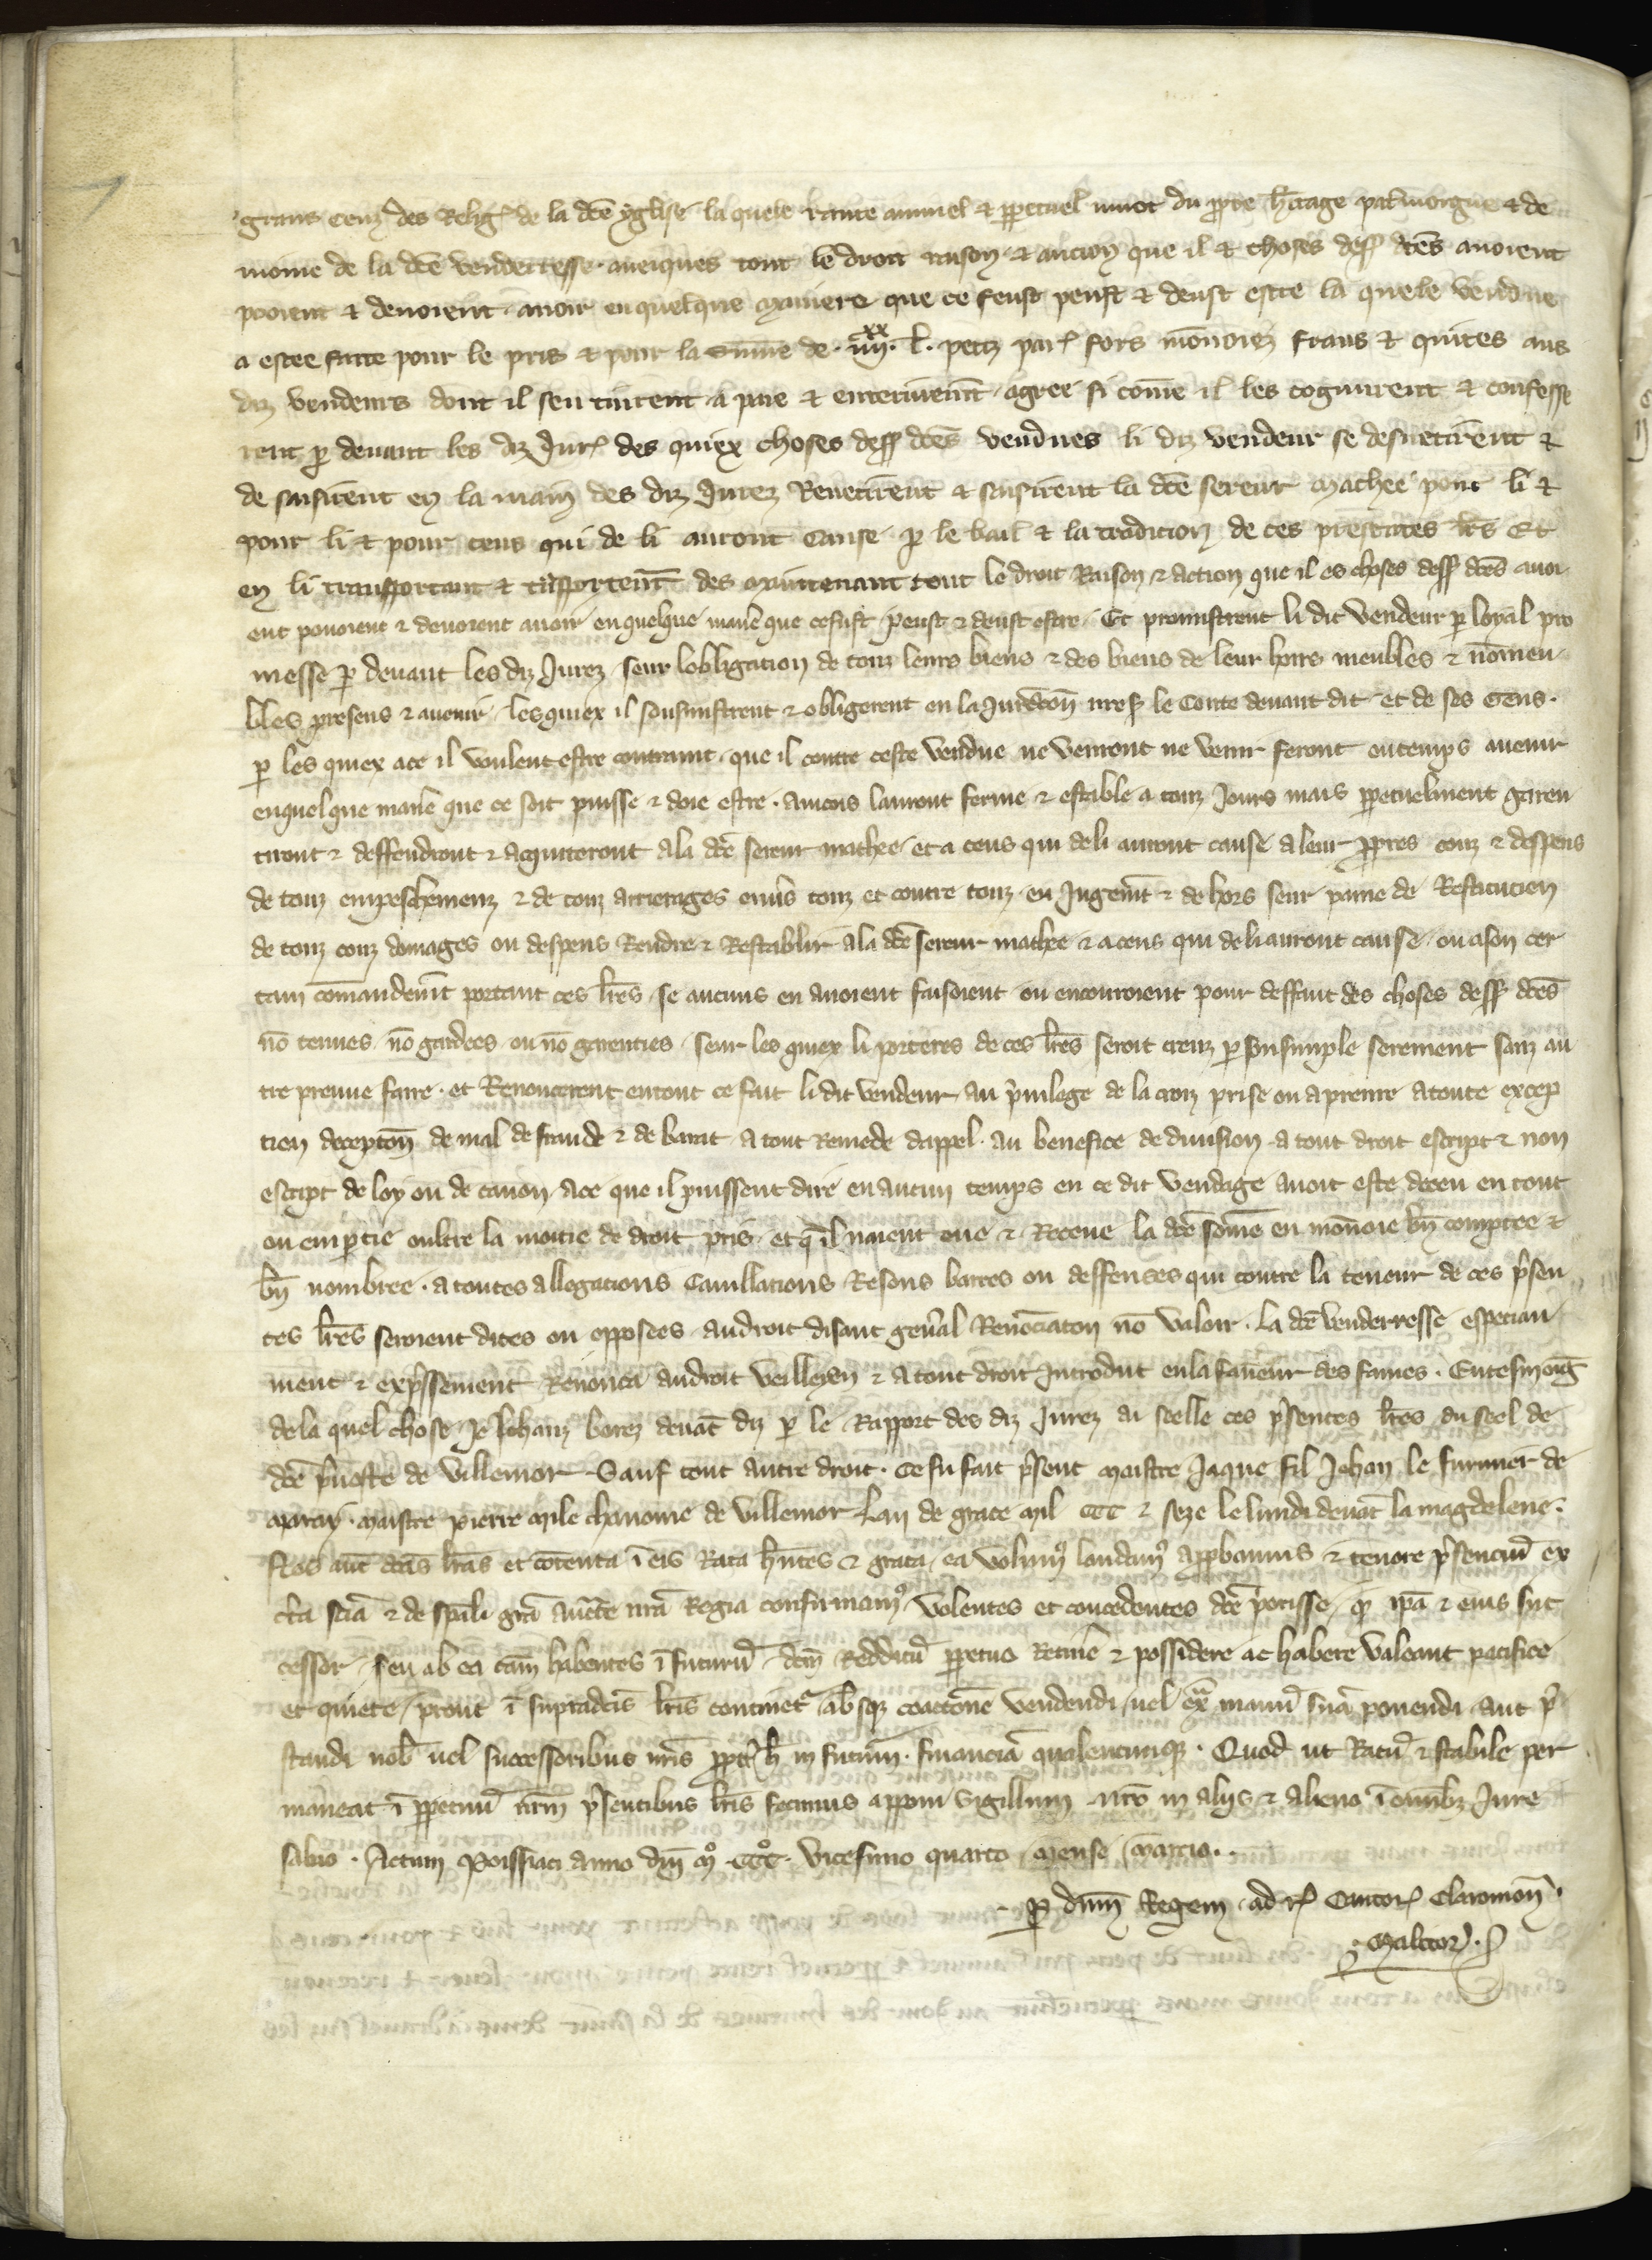 grans cenz des Relig de la dce yglise la quele rante annuel & ppetuel muet du ppre hitage patmoigne & de
moine de la dce venderresse aueiques tout le droit raison & aucion que il & choses dess dces auoient
pooient & deuoient auoir en quelque maniere que ce feust peust & deust estre la quele vendue
a estee faite pour le pris & pour la some de .iiii.xx l. petiz par fors monoiez frans & quites aus
diz vendeurs dont il sen tinrent a paie & enterinement agree si come il les cognurent & confesse
rent p deuant les diz Jur des quiex choses dess dces vendues li diz vendeur se desuetirent &
de saisirent en la main des diz Jurez Reuetirent & saisirent la dce sereur mathee pour li &
pour li & pour ceus qui de li auront cause p le bail & la tradicion de ces presentes lres Et
en li transportant & tasporterent des maintenant tout le droit Raison & action que il es choses dess dces auoi
ent pouoient & deuoient auoir en quelque maniē que ce fust peust & deust estre Et promistrent li dit vendeur p loyal pro
messe p deuant les diz Jurez seur lobligacion de touz leurs biens & des biens de leur hoirs meubles & nomeu
bles presens & auenir lesquiex il sousmistrent & obligerent en la Juridicon nress le Conte deuant dit et de ses Gens.
p les quiex ace il voulent estre contraint que il contre ceste vendue ne venront ne venir feront ou temps auenir
en quelque maniē que ce soit puisse & doie estre. aincois lauront ferme & estable a touz Jours mais ppetuelment garen
tiront & deffendront & acquitteront a la dce sereur mathee et a ceus qui de li auront cause a leur ppres couz & despens
de touz empeschemenz & de touz arrierages enuers touz et contre touz en Jugemt & de hors seur paine de Restitucion
de touz couz domages ou despens Rendre & Restablir a la dce sereur mathee & a ceus qui de li auront cause ou a son cer
tain comandemt portant ces lres se aucuns en auoient faisoient ou encouroient pour deffaut des choses dess dces
no tenues no gardees ou no garenties seur les quiex li porteres de ces lres seroit creuz p son simple serement sanz au
tre preuue faire. et Renoncerent en tout ce fait li dit vendeur au priuilege de la croiz prise ou a prenre a toute excep
tion decepton de mal de fraude & de barat a tout Remede dappel. au benefice de diuision a tout droit escript & non
escript de loy ou de canon ace que il puissent dire en aucun temps en ce dit vendage auoir este deceu en tout
ou en ptie oultre la moitie de droit pris et q il naient eue & Receue la dce some en monoie bn comptee &
bn nombree. a toutes allegacions Cauillacions Resons barres ou deffenses qui contre la teneur de ces psen
tes lres seroient dites ou opposees au droit disant genal Renonciaton no valoir. la dce venderresse especiau
ment & expssement Renonca au droit velleyen & a tout droit Introduit en la faueur des fames. En tesmoig
de la quel chose Je Jehanz borez deuat diz p le Rapport des diz Jurez ai seelle ces psentes lres du seel de
dce puoste de villemor Sauf tout autre droit. Ce fu fait psent maistre Jaque fil Jehan le furnier de
maray. maistre pierre mile chanoine de villemor Lan de grace mil CCC & seze le lundi deuat la magdelene.
Nos aut dcas lras et cotenta i eis Rata hntes & grata ea volum laudam appbamus & tenore psenciu ex
cta scia & de spali gra aucte nra Regia confirmam Volentes et concedentes dce priorisse q ipa & eius suc
cessor seu ab ea cam habentes i futuru dcm Redditu ppetuo Retine & possidere ac habere valeant pacifice
et quiete prout i supradcis lris continet absq coactone vendendi uel ex manu sua ponendi aut p
standi nob uel successoribus nris ppt h in futurm. financia qualencumq. Quod ut Ratu & stabile per
maneat i ppetuu nrm psentibus lris fecimus apponi sigillum nro in aliis & alieno i omnibz Jure
saluo. Actum Poissiaci anno dni m CCC vicesimo quarto mense marcio.
P dnm Regem ad r Cantor Claromon.
Malicor